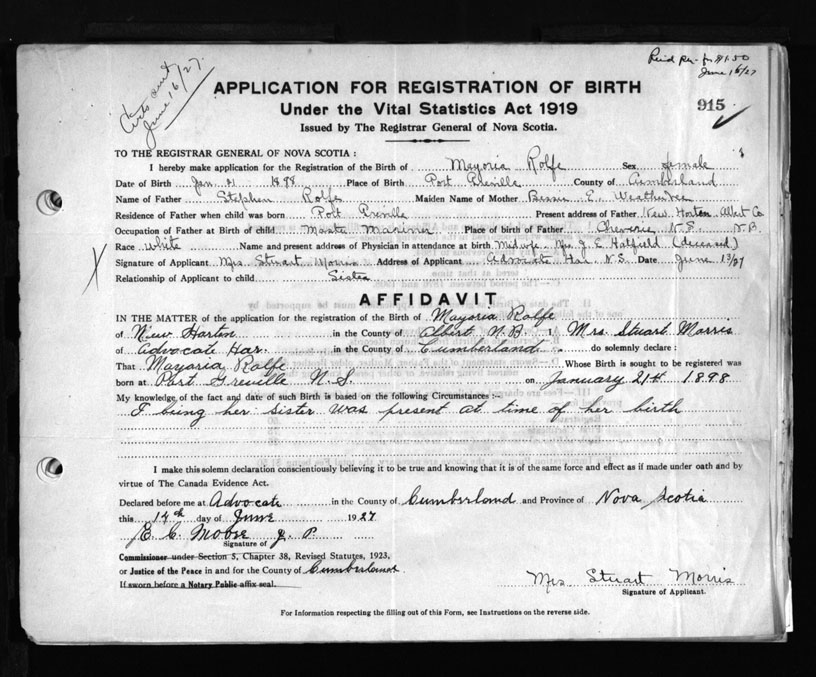 Certs sent
June 16/27.
June 16/27
APPLICATION FOR REGISTRATION OF BIRTH
Under the Vital Statistics Act 1919
915
Issued by The Registrar General of Nova Scotia.
TO THE REGISTRAR GENERAL OF NOVA SCOTIA :
I hereby make application for the Registration of the Birth of Mayoria Rolfe Sex female
Date of Birth Jan 21 1898 Place of Birth Port Greville County of Cumberland
Name of Father Stephen Rolfe Maiden Name of Mother Bessie E. Weatherbee
Residence of Father when child was born Port Greville Present address of Father New Horton Albert Co
Occupation of Father at Birth of Child Master Mariner Place of birth of Father Cheverie N.S. N.B.
Race White Name and present address of Physician in attendance at birth Midwife Mrs J. E Hatfield (deceased)
Signature of Applicant Mrs Stuart Morris Address of Applicant Advocate Har N.S. Date June 13/27
Relationship of Applicant to child Sister
AFFIDAVIT
IN THE MATTER of the application for the registration of the Birth of Mayoria Rolfe
of New Horton in the County of Albert N.B. I, Mrs. Stuart Morris
of Advocate Har. in the County of Cumberland do solemnly declare :
That Mayoria Rolfe Whose Birth is sought to be registered was
born at Port Greville N.S. on January 21st 1898
My knowledge of the fact and date of such Birth is based on the following Circumstances :-
I being her sister was present at time of her birth
I make this solemn declaration conscientiously believing it to be true and knowing that it is of the same force and effect as if made under oath and by
virtue of The Canada Evidence Act.
Declared before me at Advocate in the County of Cumberland and Province of Nova Scotia
this 14th day of June 1927
E. C. Moore J. P.
Signature of
Commissioner under Section 5, Chapter 38, Revised Statutes, 1923,
or Justice of the Peace in and for the County of Cumberland.
If sworn before a Notary Public affix seal.
Mrs Stuart Morris
Signature of Applicant.
For Information respecting the filling out of this Form, see Instructions on the reverse side.